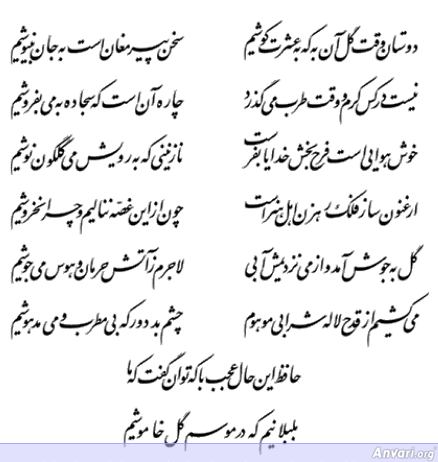 دوستان وقت گل آن به که به عشرت کوشیم سخن پیر مغان است به جان بنیوشیم
نیست در کس کرم و وقت طرب می گذرد چاره آن است که سجاده به می بفروشیم
خوش هوایی است فرح بخش خدایا بفرست نازنینی که به رویش می گلگون نوشیم
ارغنون ساز فلک رهزن اهل هنر است چون از این غصّه ننالیم و چرا نخروشیم
گل به جوش آمد و از می نزدیمش آبی لاجرم ز آتش حرمان و هوس می جوشیم
می کشیم از قدح لاله شرابی موهوم چشم بد دور که بی مطرب و می مدهوشیم
حافظ این حال عجب با که توان گفت که ما
بلبلانیم که در موسم گل خاموشیم
Anvari.org